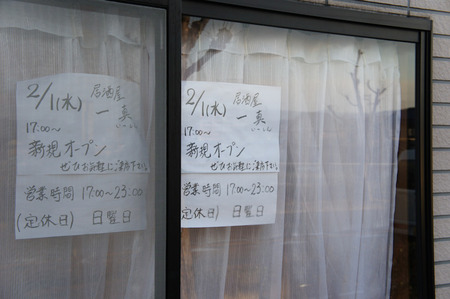 2/1(水) 居酒屋
一真
17:00~
新規オープン
ぜひお気軽にご来店下さい。
営業時間 17:00~23:00
(定休日) 日曜日
2/1(水) 居酒屋
一真
17:00~
新規オープン
ぜひお気軽にご来店下さい。
営業時間 17:00~23:00
(定休日) 日曜日